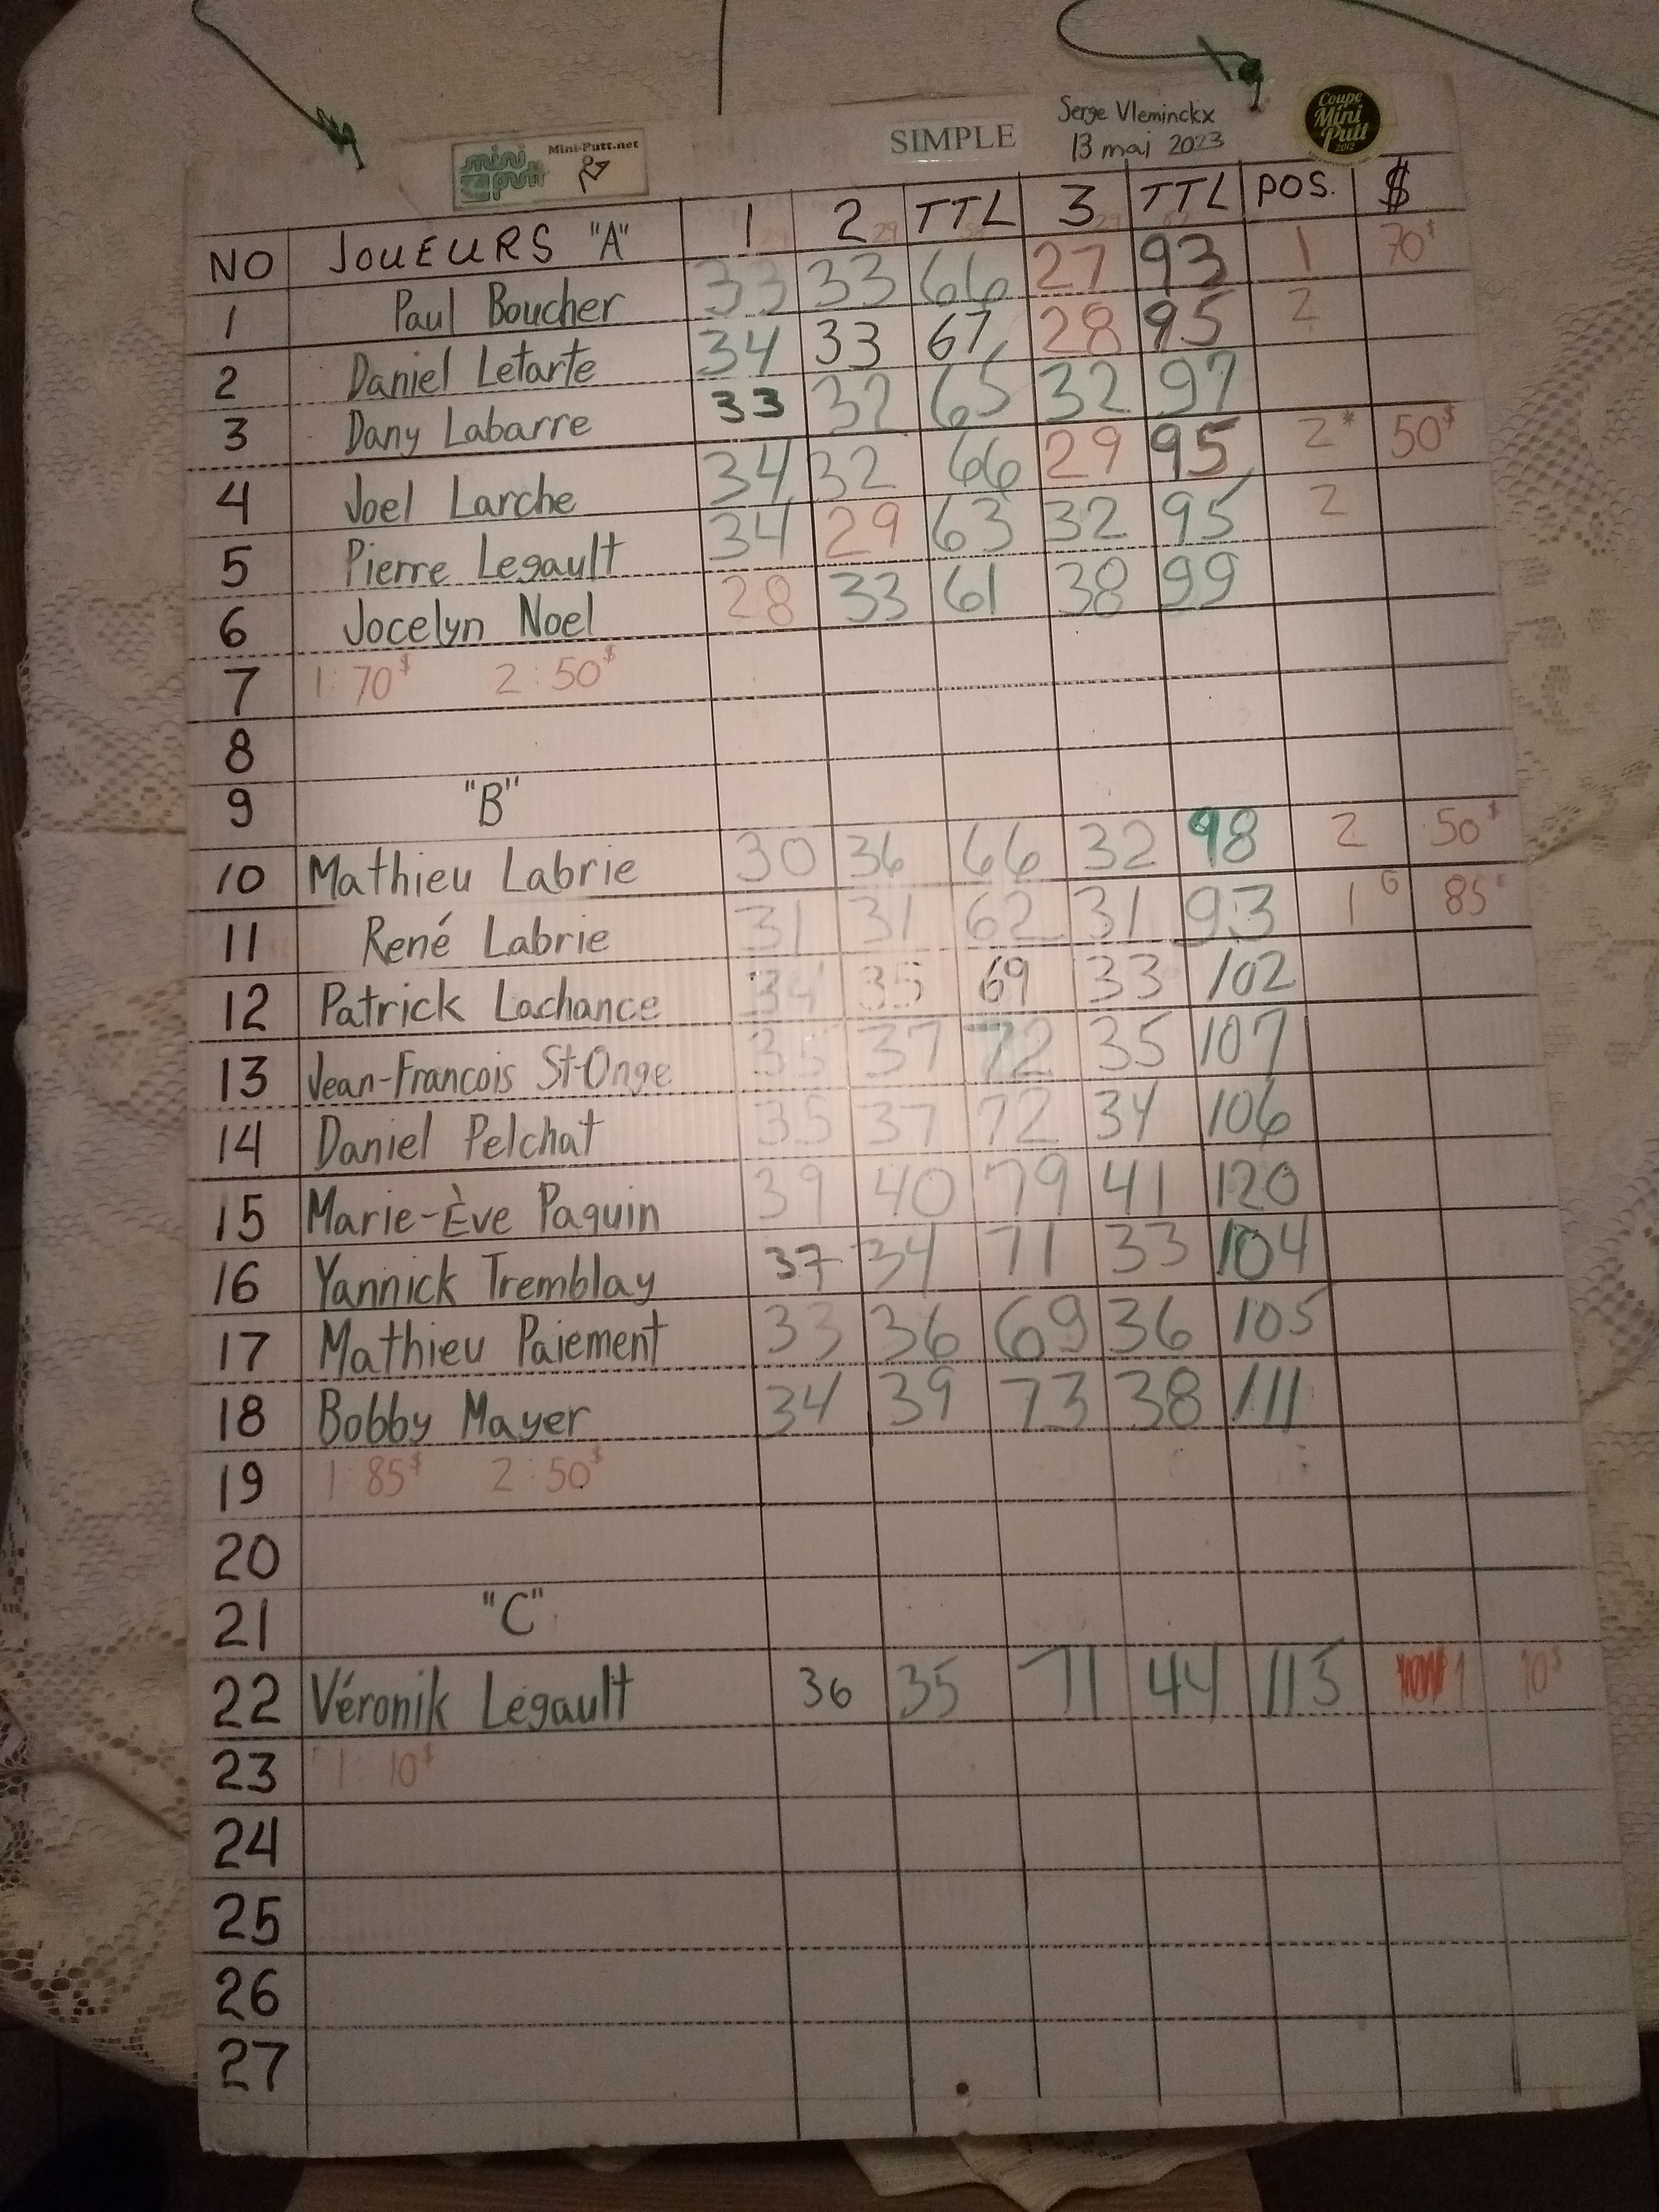 Serge Vleminckx
SIMPLE
13 mai 2023
mini putt Mini-Putt.net
Coupe Mini Putt 2012
NO JOUEURS "A" 1 2 TTL 3 TTL POS. $
1 Paul Boucher 33 33 66 27 93 1 70$
2 Daniel Letarte 34 33 67 28 95 2
3 Dany Labarre 33 32 65 32 97
4 Joel Larche 34 32 66 29 95 2* 50$
5 Pierre Legault 34 29 63 32 95 2
6 Jocelyn Noel 28 33 61 38 99
7 1: 70$ 2: 50$
8
9 "B"
10 Mathieu Labrie 30 36 66 32 98 2 50$
11 René Labrie 31 31 62 31 93 1 G 85$
12 Patrick Lachance 34 35 69 33 102
13 Jean-Francois St-Onge 35 37 72 35 107
14 Daniel Pelchat 35 37 72 34 106
15 Marie-Ève Paquin 39 40 79 41 120
16 Yannick Tremblay 37 34 71 33 104
17 Mathieu Paiement 33 36 69 36 105
18 Bobby Mayer 34 39 73 38 111
19 1: 85$ 2: 50$
20
21 "C"
22 Véronik Legault 36 35 71 44 115 1 10$
23 1: 10$
24
25
26
27